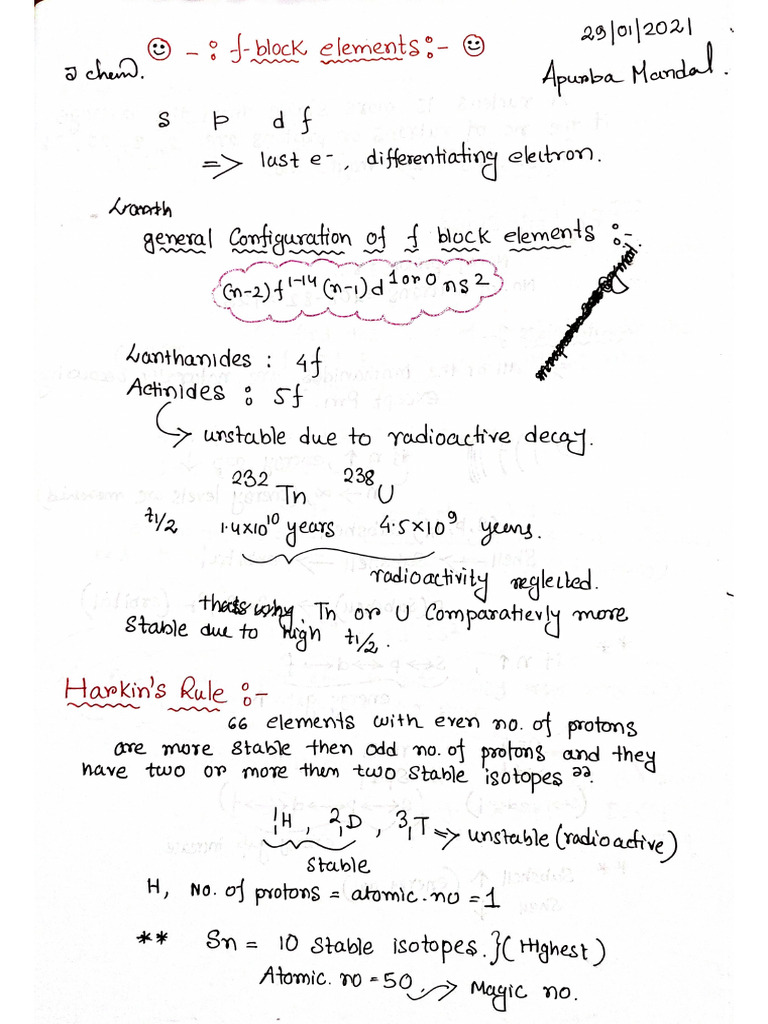 29/01/2021
☺ -: f-block elements:- ☺
J chem.
Apurba Mandal.
s p d f
=> last e-, differentiating electron.
Lanth
general Configuration of f block elements :-
(n-2)f¹⁻¹⁴ (n-1)d¹ ᵒʳ ⁰ ns²
Lanthanides : 4f
Actinides : 5f
↳ unstable due to radioactive decay.
²³²Tn ²³⁸U
t1/2 1.4×10¹⁰ years 4.5×10⁹ years.
radioactivity neglected.
thats why, Tn or U Comparatievly more
stable due to high t1/2.
Harkin's Rule :-
66 elements with even no. of protons
are more stable then odd no. of protons and they
have two or more then two stable isotopes 99.
¹₁H, ²₁D, ³₁T => unstable (radioactive)
stable
H, No. of protons = atomic.no = 1
** Sn = 10 stable isotopes.}(Highest)
Atomic. no = 50 → Magic no.